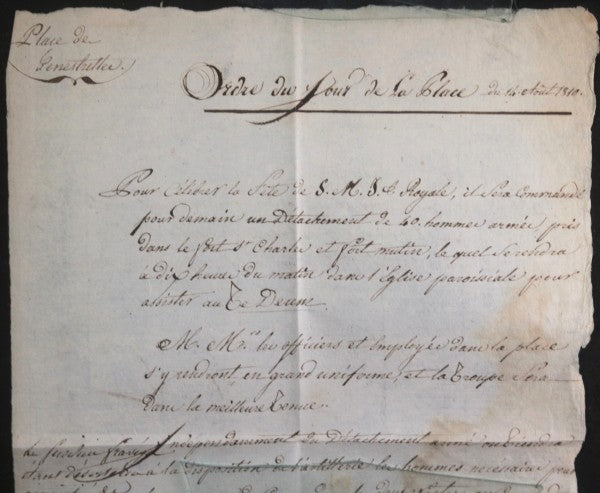 Place de
fenestrelles.
Ordre du Jour de La Place du 14 Août 1810.
Pour Célébrer la fête de S. M. I. & Royale, il Sera Commandé
pour demain un Détachement de 40. hommes armés, pris
dans le fort St Charles et fort mutin, le quel Se rendra
à dix heures du matin dans l'Eglise paroissiale pour
assister au Te Deum.
M. Mrs les officiers et Employés dans la place
s'y rendront en grand uniforme, et la Troupe Sera
dans la meilleure tenue.
Indépendamment du Détachement armé
à la disposition de l'artillerie hommes necessaires pour